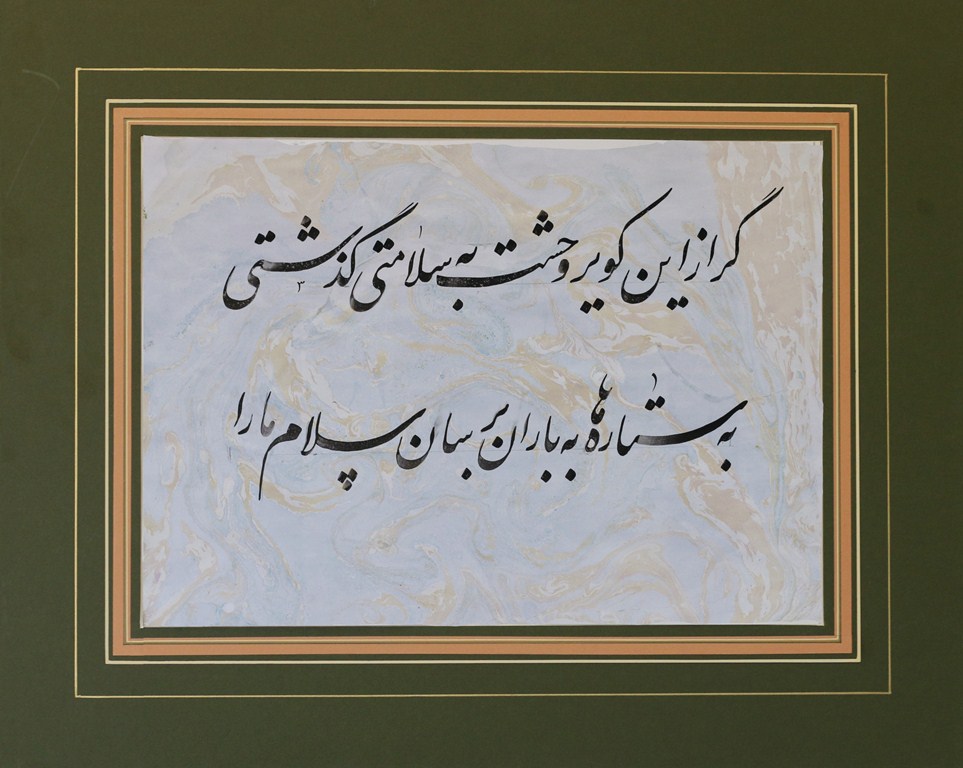 گر از این کویر وحشت به سلامتی گذشتی
به ستاره ها به باران برسان سلام ما را